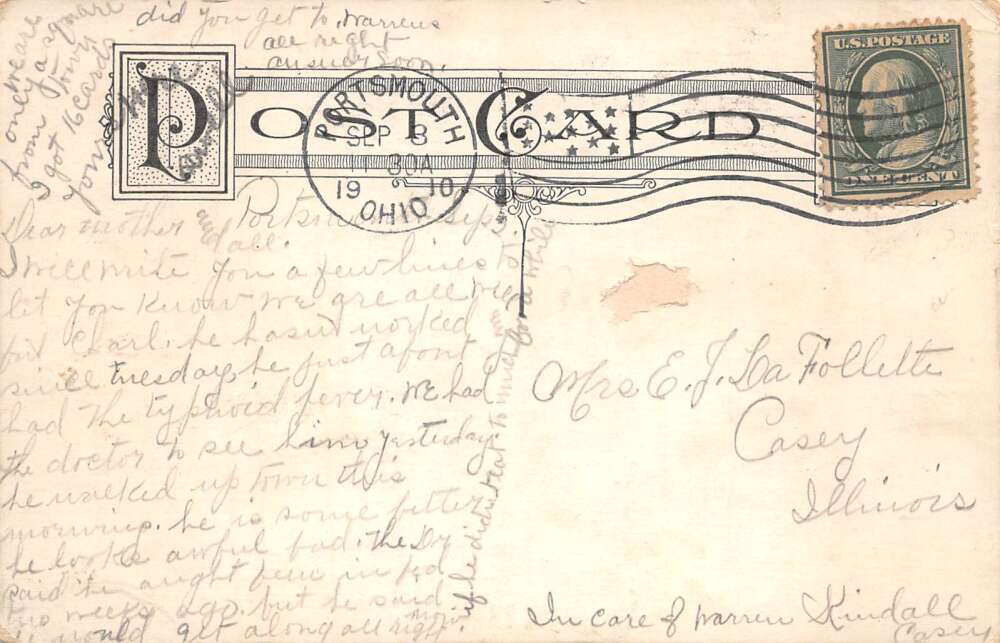 did you get to Warrens
all right
answer soon.
only we are
from a square
town
I got 16 cards
yours
POST CARD
PORTSMOUTH
SEP 8
11 30A
1910
OHIO
U.S. POSTAGE
ONE CENT
Dear mother and all.
I will write you a few lines to
let you know we are all well
but Charl. he hasn't worked
since tuesday, he just about
had the typhoid fever. We had
the doctor to see him yesterday
he walked up town this
morning. he is some better
he looks awful bad. the Dr
said he aught been in bed
two weeks ago. but he said
he would get along all right now
if he didn't eat to much for a while
Mrs E. J. La Follette
Casey
Illinois
In care of Warren Kindall
Casey